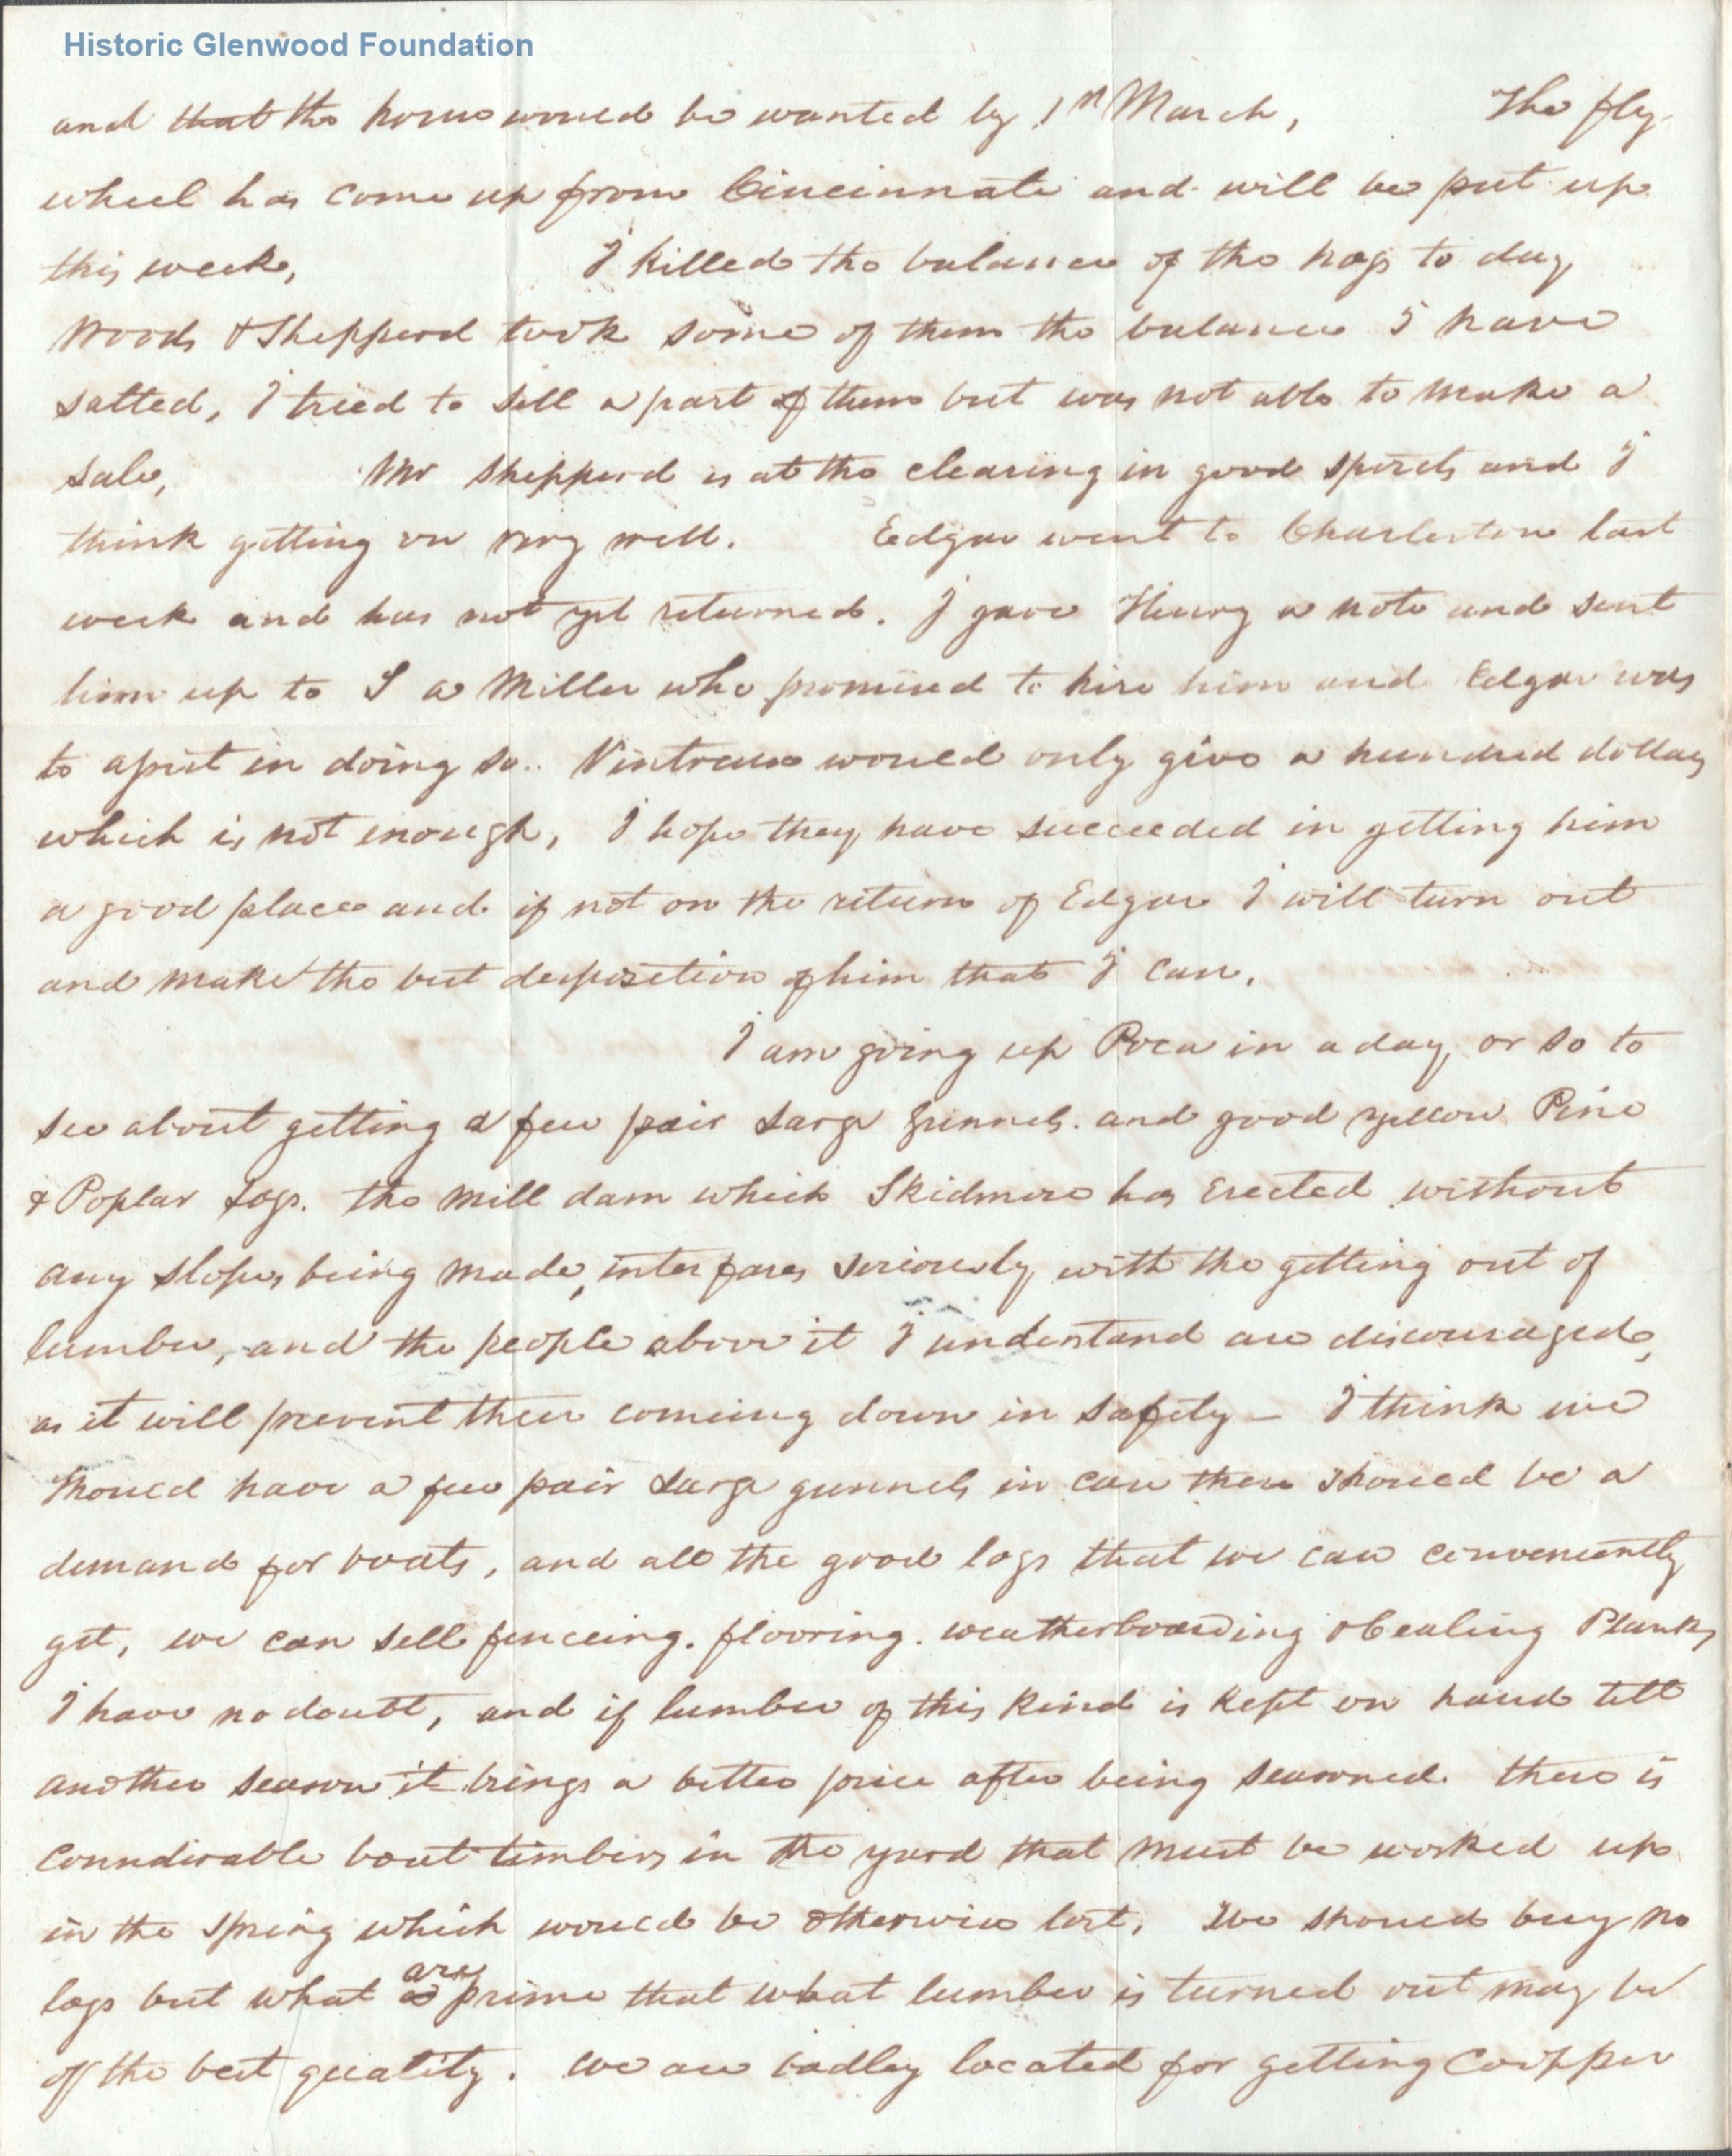 Historic Glenwood Foundation
and that the house would be wanted by 1st March, The fly
wheel has come up from Cincinnati and will be put up
this week, I killed the balance of the hogs to day
Woods & Shepperd took some of them the balance I have
salted, I tried to sell a part of them but was not able to make a
sale, Mr Shepperd is at the clearing in good spirits and I
think getting on very well. Edgar went to Charleston last
week and has not yet returned. I gave Henry a note and sent
him up to S a Miller who promised to hire him and Edgar was
to assist in doing so.. would only give a hundred dollars
which is not enough, I hope they have succeeded in getting him
a good place and if not on the return of Edgar I will turn out
and make the best desposition of him that I can.
I am going up Poca in a day or so to
see about getting a few pair Large gunnels. and good yellow Pine
& Poplar Logs. the mill dam which Skidmore has Erected without
any slopes being made, interfares seriously with the getting out of
lumber, and the people above it I understand are discouraged,
as it will prevent their comeing down in safety — I think we
should have a few pair Large gunnels in case there should be a
demand for boats, and all the good logs that we can conveniently
get, we can sell fenceing. flooring. weatherboarding & Cealing Planks
I have no doubt, and if lumber of this kind is kept on hand till
another season it brings a better price after being seasoned. there is
considirable boat timbers in the yard that must be worked up
in the spring which would be otherwise lost, We should buy no
are
logs but what prime that what lumber is turned out may be
of the best quality. we are badley located for getting Coopper